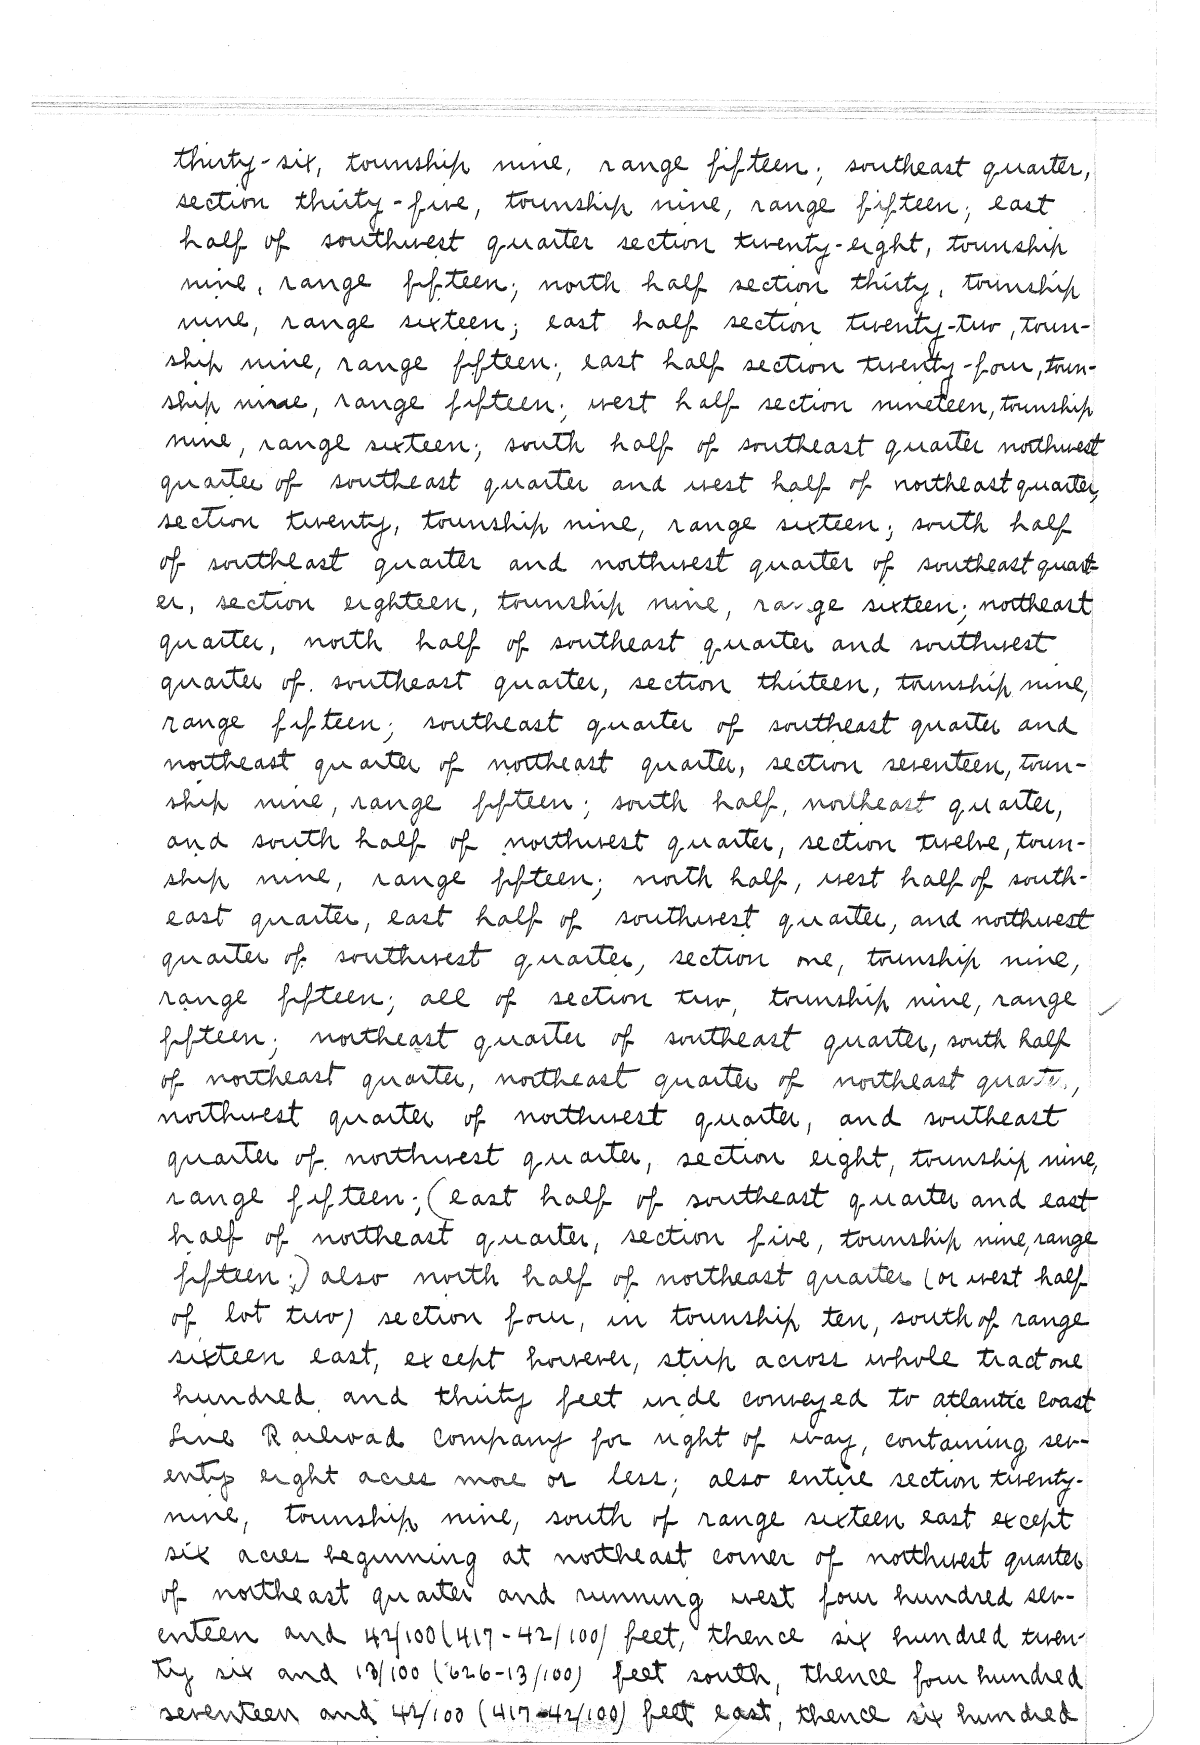 thirty-six, township nine, range fifteen; southeast quarter,
section thirty-five, township nine, range fifteen; east
half of southwest quarter section twenty-eight, township
nine, range fifteen; north half section thirty, township
nine, range sixteen; east half section twenty-two, town-
ship nine, range fifteen; east half section twenty-four, town-
ship nine, range fifteen; west half section nineteen, township
nine, range sixteen; south half of southeast quarter northwest
quarter of southeast quarter and west half of northeast quarter,
section twenty, township nine, range sixteen; south half
of southeast quarter and northwest quarter of southeast quart-
er, section eighteen, township nine, range sixteen; northeast
quarter, north half of southeast quarter and southwest
quarter of southeast quarter, section thirteen, township nine,
range fifteen; southeast quarter of southeast quarter and
northeast quarter of northeast quarter, section seventeen, town-
ship nine, range fifteen; south half, northeast quarter,
and south half of northwest quarter, section twelve, town-
ship nine, range fifteen; north half, west half of south-
east quarter, east half of southwest quarter, and northwest
quarter of southwest quarter, section one, township nine,
range fifteen; all of section two, township nine, range
fifteen; northeast quarter of southeast quarter, south half
of northeast quarter, northeast quarter of northeast quarter,
northwest quarter of northwest quarter, and southeast
quarter of northwest quarter, section eight, township nine,
range fifteen; (east half of southeast quarter and east
half of northeast quarter, section five, township nine, range
fifteen;) also north half of northeast quarter (or west half
of lot two) section four, in township ten, south of range
sixteen east, except however, strip across whole tract one
hundred and thirty feet wide conveyed to atlantic coast
Line Railroad Company for right of way, containing sev-
enty eight acres more or less; also entire section twenty-
nine, township nine, south of range sixteen east except
six acres beginning at northeast corner of northwest quarter
of northeast quarter and running west four hundred sev-
enteen and 42/100 (417-42/100) feet, thence six hundred twen-
ty six and 13/100 (626-13/100) feet south, thence four hundred
seventeen and 42/100 (417-42/100) feet east, thence six hundred